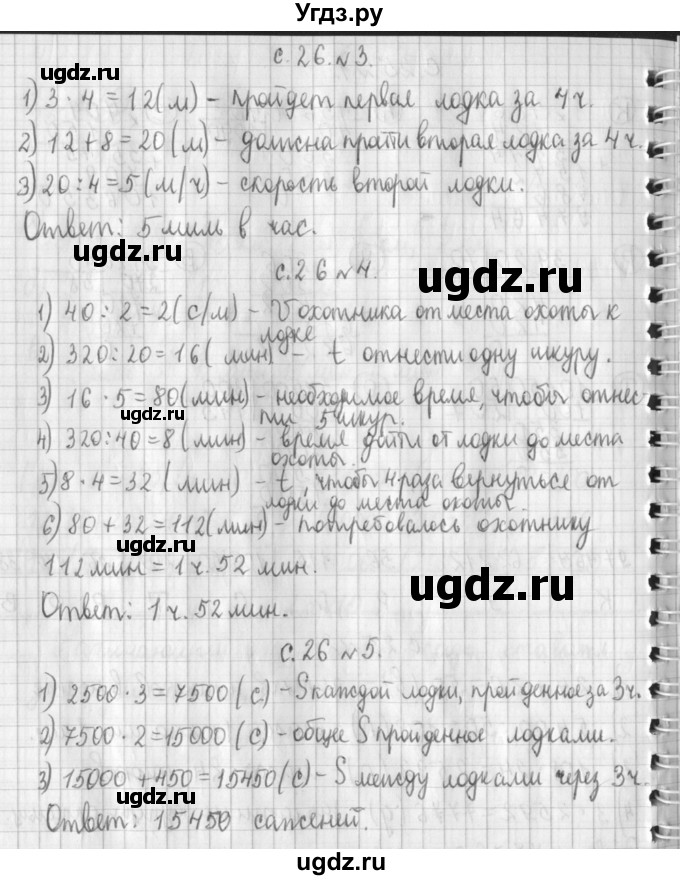 Угдз.ру
с. 26. № 3.
ugdz.ru
1) 3 · 4 = 12 (м) – пройдет первая лодка за 4 ч.
2) 12 + 8 = 20 (м) – должна прати вторая лодка за 4 ч.
ugdz.ru
3) 20 : 4 = 5 (м/ч) – скорость второй лодки.
Ответ: 5 миль в час.
ugdz.ru
с. 26 № 4.
ugdz.ru
1) 40 : 2 = 2 (с/м) – V охотника от места охоты к
лодке
2) 320 : 20 = 16 (мин) – t отнести одну шкуру.
3) 16 · 5 = 80 (мин) – необходимое время, чтобы отнес-
ugdz.ru
ти 5 шкур.
4) 320 : 40 = 8 (мин) – время дойти от лодки до места
охоты.
5) 8 · 4 = 32 (мин) – t, чтобы 4 раза вернуться от
лодки до места охоты.
6) 80 + 32 = 112 (мин) – потребовалось охотнику
ugdz.ru
112 мин = 1 ч. 52 мин.
ugdz.ru
Ответ: 1 ч. 52 мин.
с. 26 № 5.
ugdz.ru
1) 2500 · 3 = 7500 (с.) – S каждой лодки, пройденное за 3 ч.
2) 7500 · 2 = 15000 (с) – общее S пройденное лодками.
3) 15000 + 450 = 15450 (с) – S между лодками через 3 ч.
ugdz.ru
ugdz.ru
Ответ: 15450 саженей.
ugdz.ru